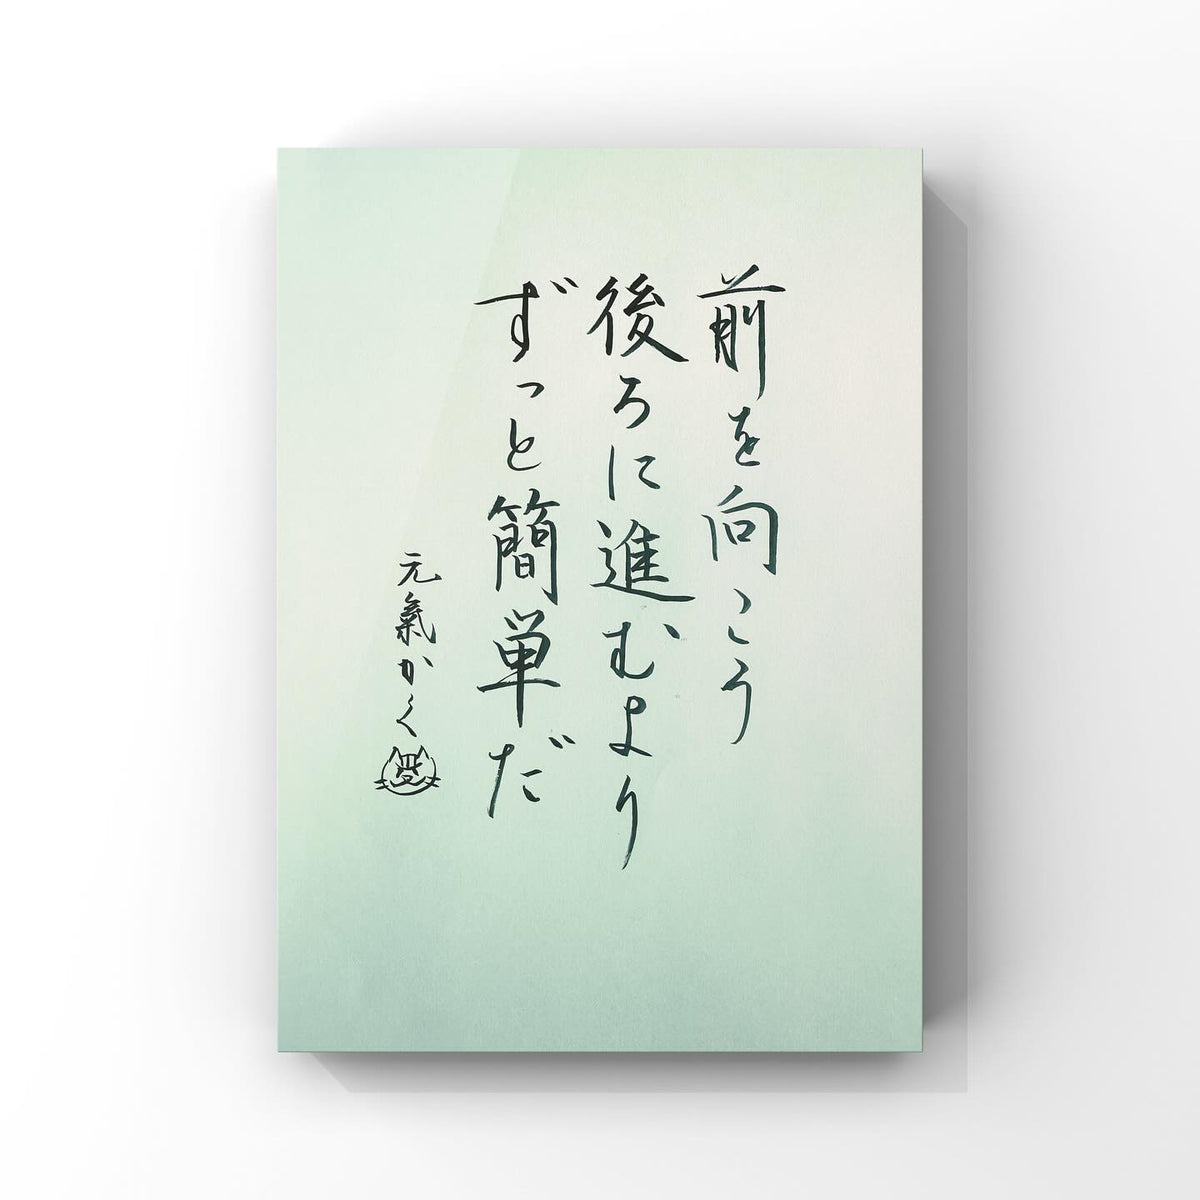 前を向こう
後ろに進むより
ずっと簡単だ
元氣かく
愛